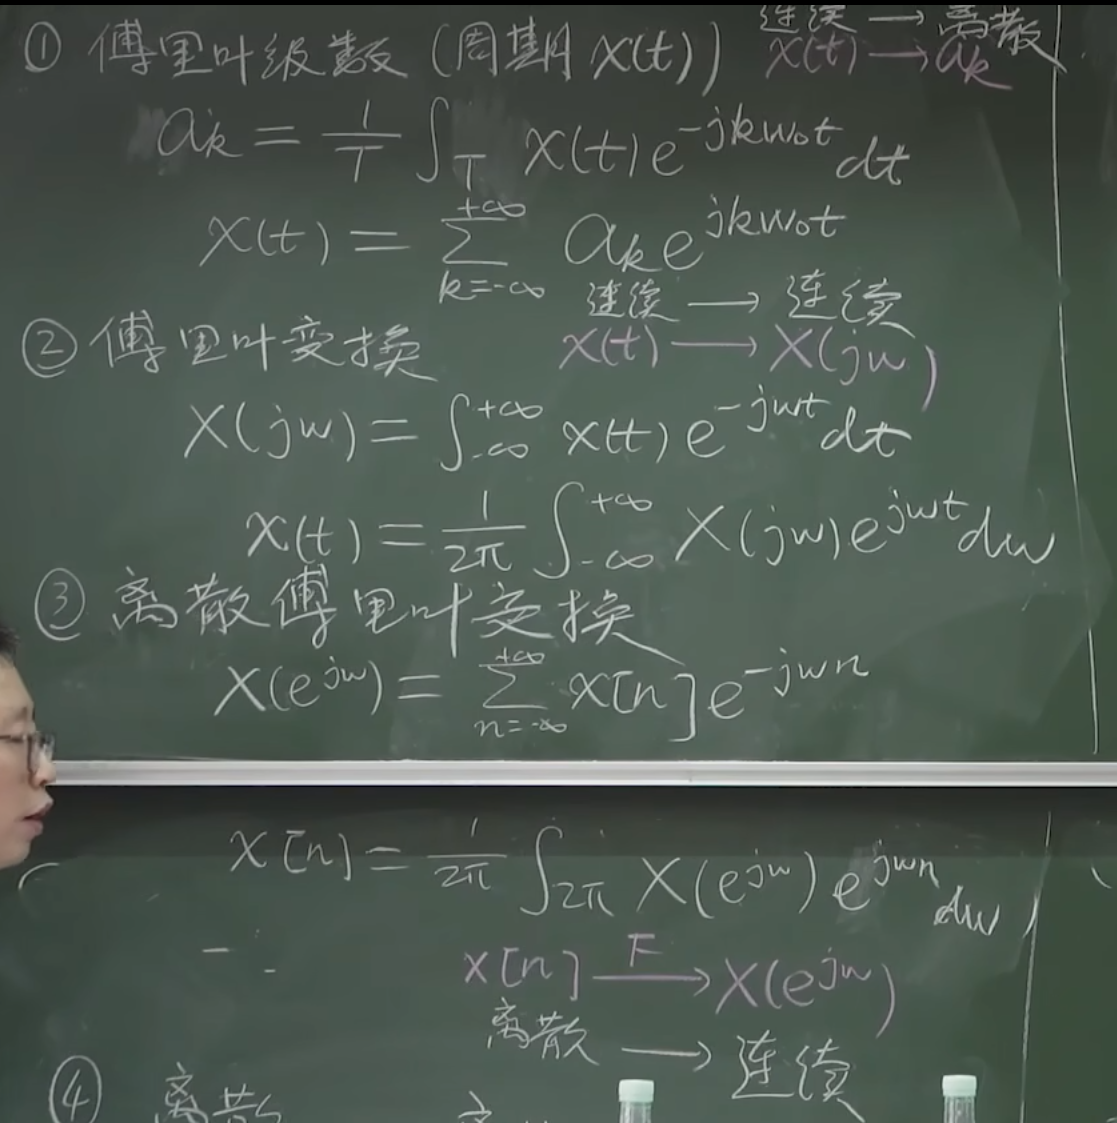 ① 傅里叶级数 (周期 x(t)) 连续 → 离散
x(t) → aₖ
aₖ = 1/T ∫_T x(t) e^{-jkw₀t} dt
x(t) = ∑_{k=-∞}^{+∞} aₖ e^{jkw₀t}
连续 → 连续
② 傅里叶变换 x(t) → X(jw)
X(jw) = ∫_{-∞}^{+∞} x(t) e^{-jwt} dt
x(t) = 1/2π ∫_{-∞}^{+∞} X(jw) e^{jwt} dw
③ 离散傅里叶变换
X(e^{jw}) = ∑_{n=-∞}^{+∞} x[n] e^{-jwn}
x[n] = 1/2π ∫_{2π} X(e^{jw}) e^{jwn} dw
x[n] —F→ X(e^{jw})
离散 → 连续
④ 离散